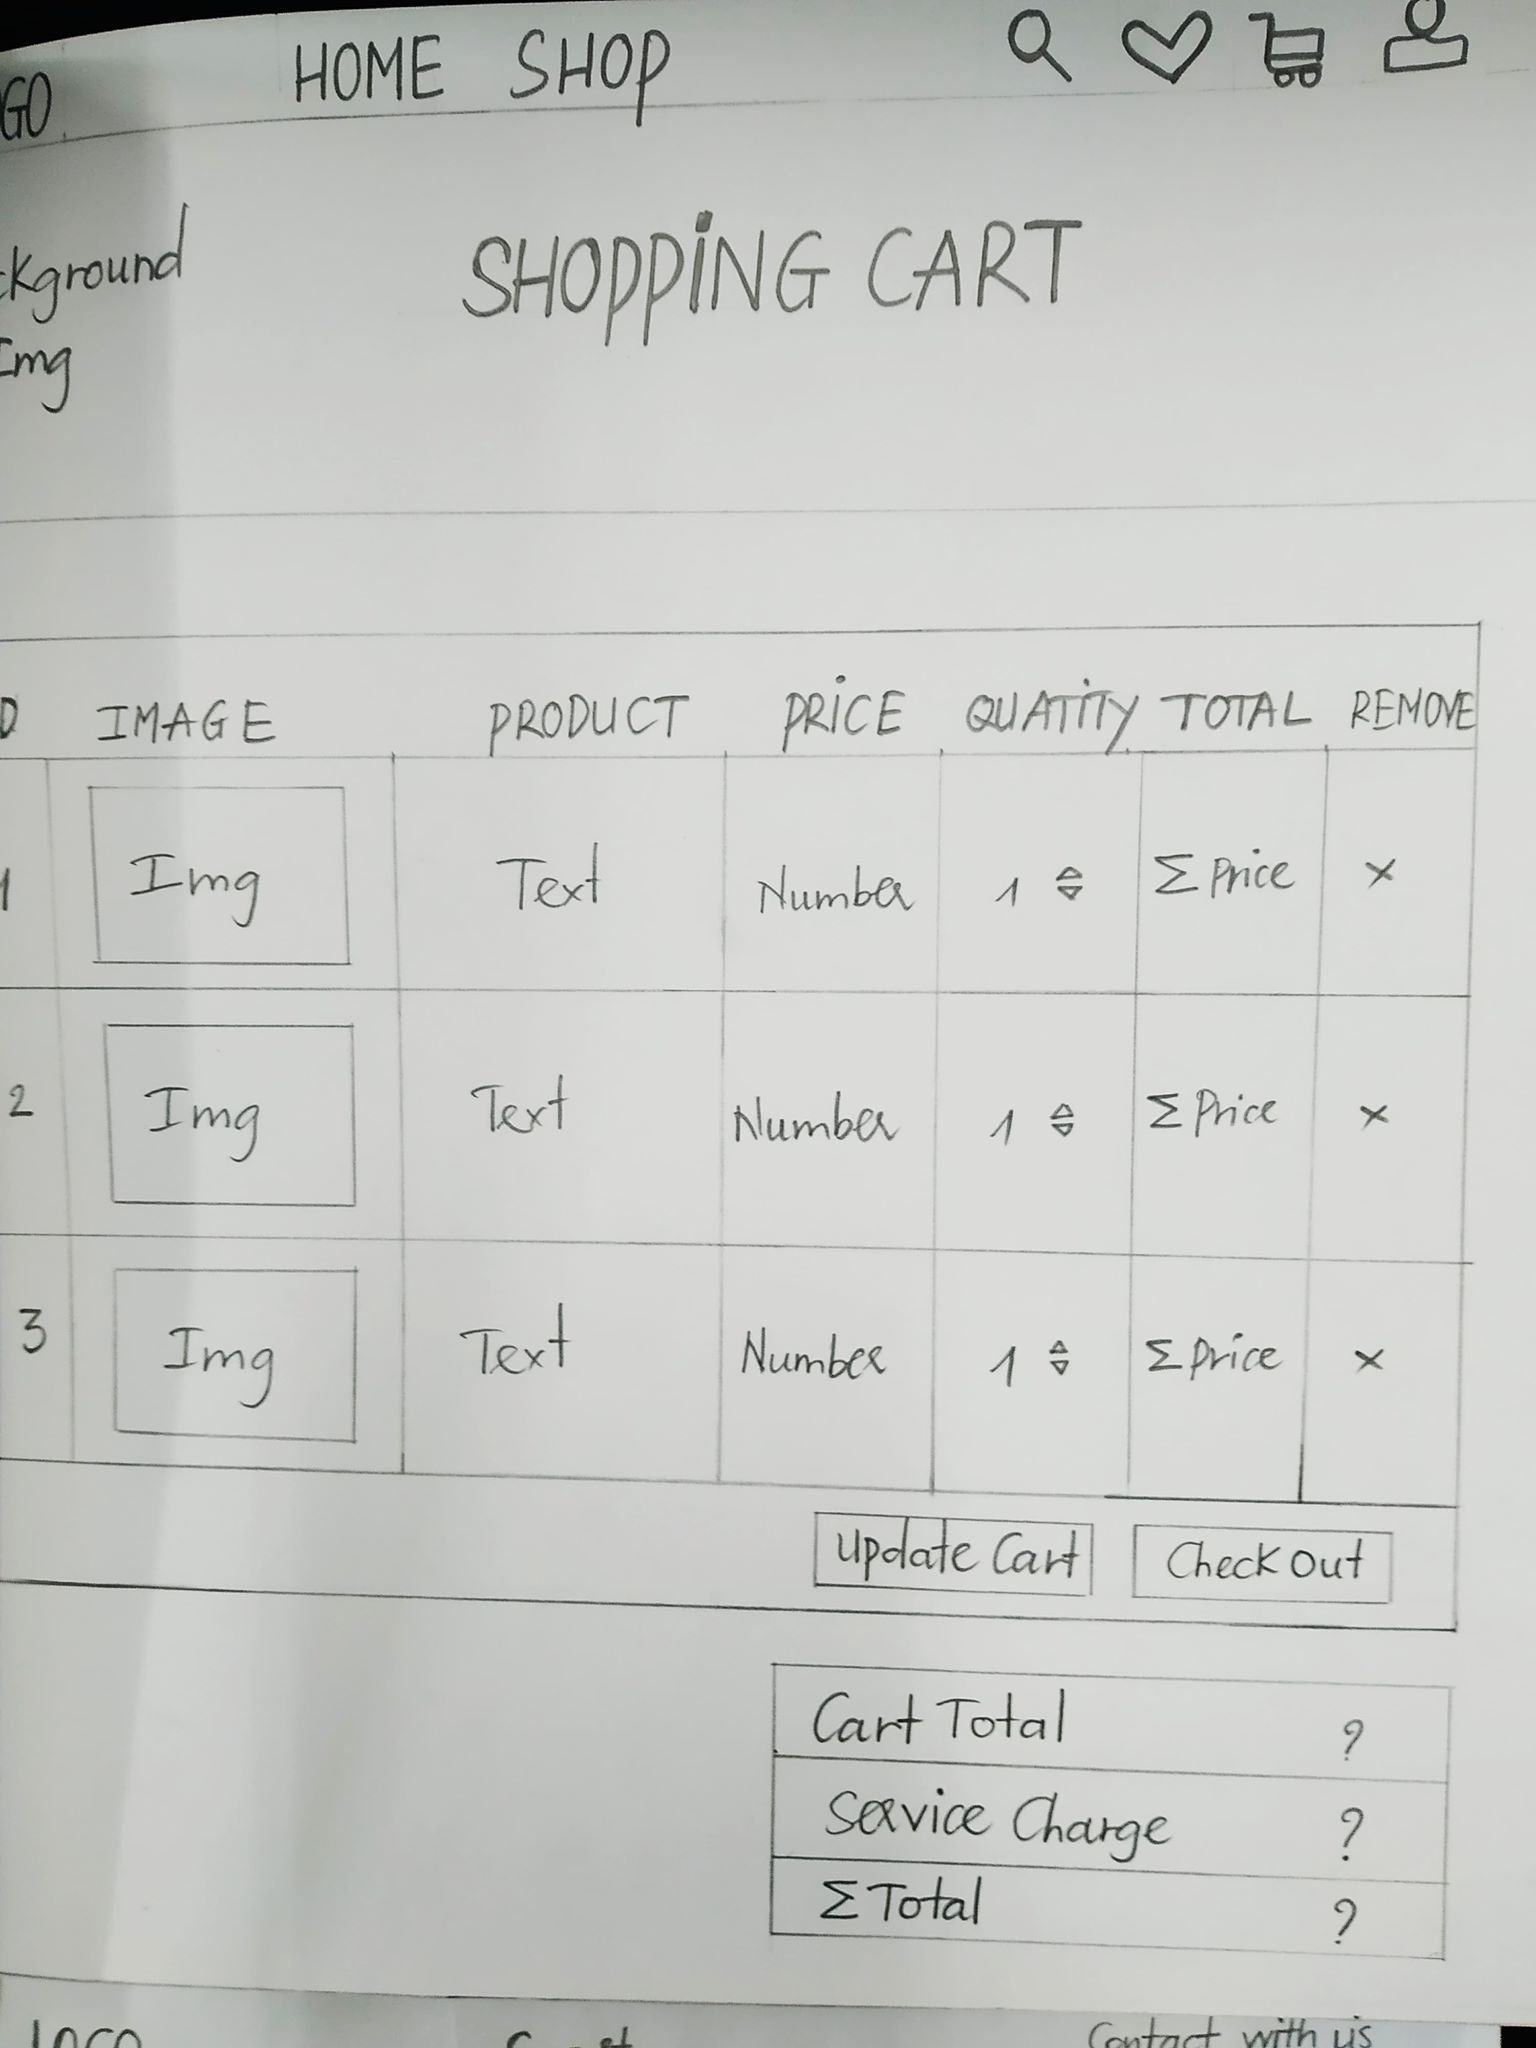 GO HOME SHOP
SHOPPING CART
ckground
Img
D IMAGE PRODUCT PRICE QUATITY TOTAL REMOVE
1 Img Text Number 1 Σ Price ×
2 Img Text Number 1 Σ Price ×
3 Img Text Number 1 Σ Price ×
Update Cart Check Out
Cart Total ?
Service Charge ?
Σ Total ?
LOGO Contact with us